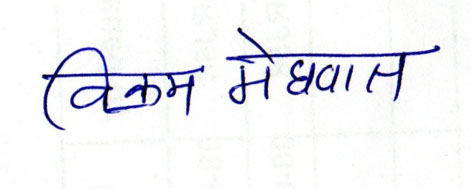 विक्रम मेघवाल